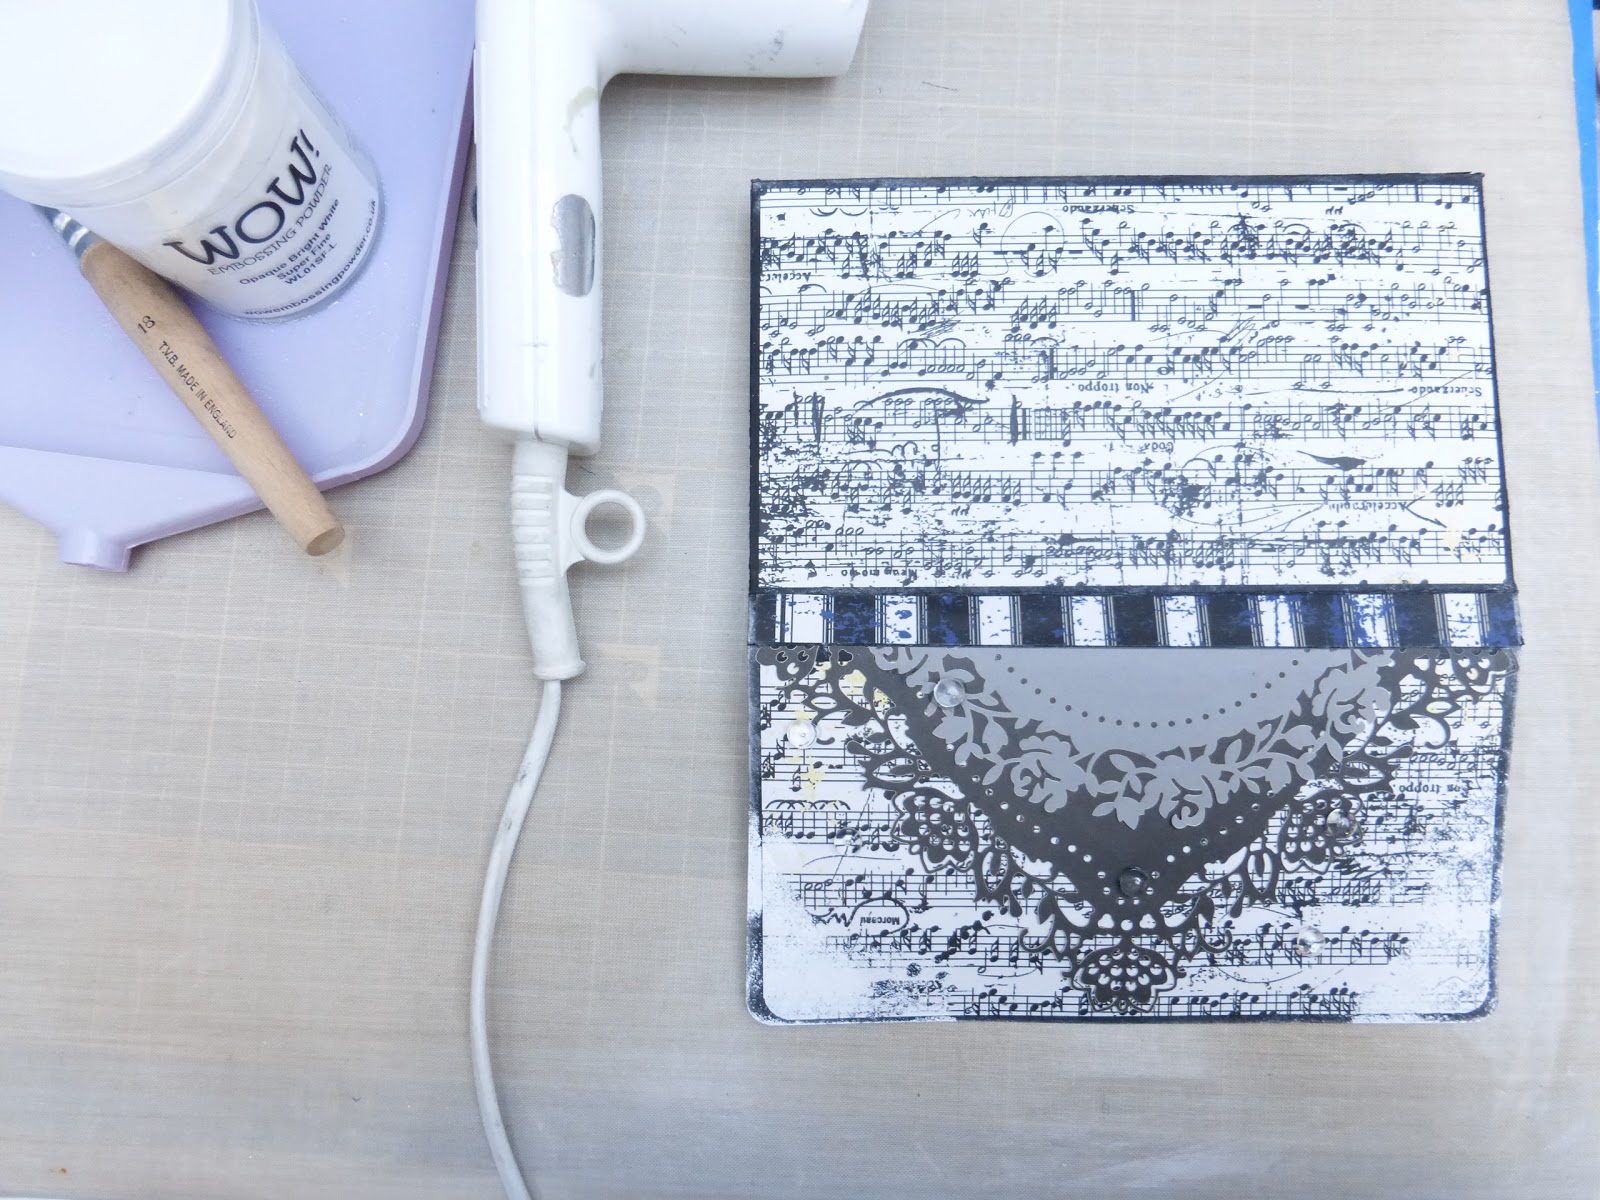 WOW!
EMBOSSING POWDER
Opaque Bright White
Super Fine
WL01SF-L
wowembossingpowder.co.uk
18 T.V.B. MADE IN ENGLAND
Scherzando
Acceler
Non troppo.
Scherzando
Coda
Accelerando
Meno mosso
Non troppo.
Morceau